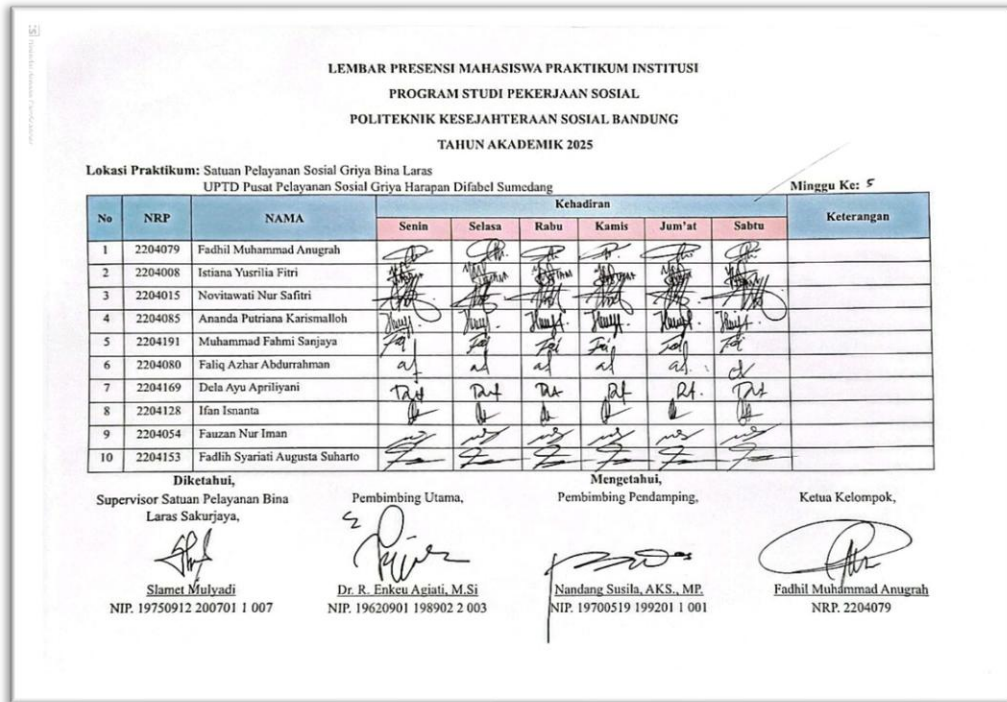 LEMBAR PRESENSI MAHASISWA PRAKTIKUM INSTITUSI
PROGRAM STUDI PEKERJAAN SOSIAL
POLITEKNIK KESEJAHTERAAN SOSIAL BANDUNG
TAHUN AKADEMIK 2025
Lokasi Praktikum: Satuan Pelayanan Sosial Griya Bina Laras
UPTD Pusat Pelayanan Sosial Griya Harapan Difabel Sumedang
Minggu Ke: 5
No NRP NAMA Kehadiran Keterangan
Senin Selasa Rabu Kamis Jum'at Sabtu
1 2204079 Fadhil Muhammad Anugrah
2 2204008 Istiana Yusrilia Fitri
3 2204015 Novitawati Nur Safitri
4 2204085 Ananda Putriana Karismalloh
5 2204191 Muhammad Fahmi Sanjaya
6 2204080 Faliq Azhar Abdurrahman
7 2204169 Dela Ayu Apriliyani
8 2204128 Ifan Isnanta
9 2204054 Fauzan Nur Iman
10 2204153 Fadlih Syariati Augusta Suharto
Diketahui,
Supervisor Satuan Pelayanan Bina
Laras Sakurjaya,
Slamet Mulyadi
NIP. 19750912 200701 1 007
Pembimbing Utama,
Dr. R. Enkeu Agiati, M.Si
NIP. 19620901 198902 2 003
Mengetahui,
Pembimbing Pendamping,
Nandang Susila, AKS., MP.
NIP. 19700519 199201 1 001
Ketua Kelompok,
Fadhil Muhammad Anugrah
NRP. 2204079